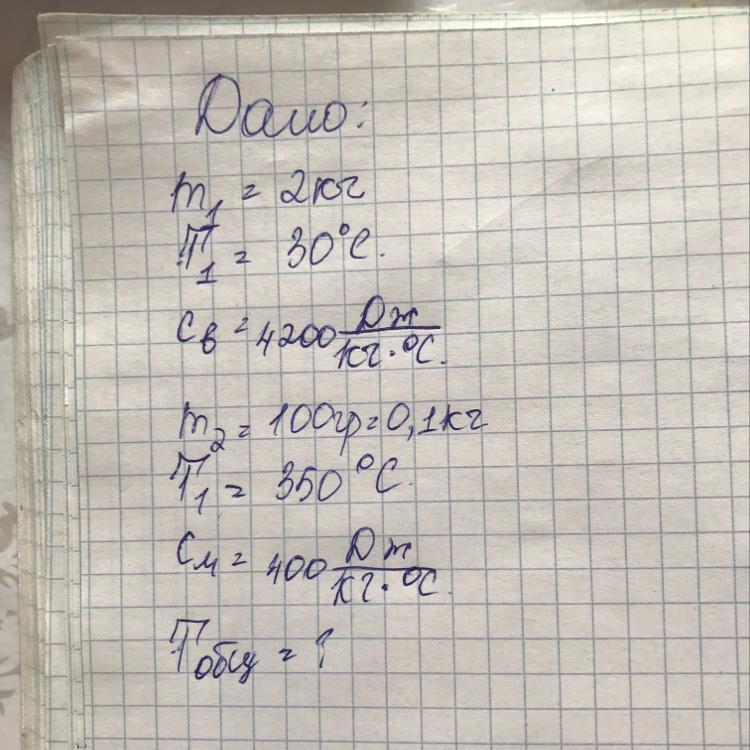 Дано:
m₁ = 2кг
T₁ = 30°C.
Cв = 4200 Дж/кг·°C.
m₂ = 100гр=0,1кг
T₁ = 350°C.
Cм = 400 Дж/кг·°C.
Tобщ = ?